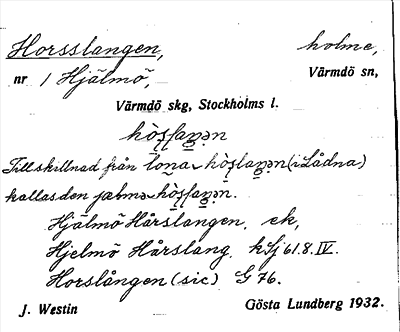 Horsslangen, holme,
nr 1 Hjälmö, Värmdö sn,
Värmdö skg, Stockholms l.
Till skillnad från (i Lådna)
kallas den
Hjälmö Hårslangen, ek,
Hjelmö Hårslang, hSj 61.8.IV.
Horslången (sic) G 76.
J. Westin Gösta Lundberg 1932.